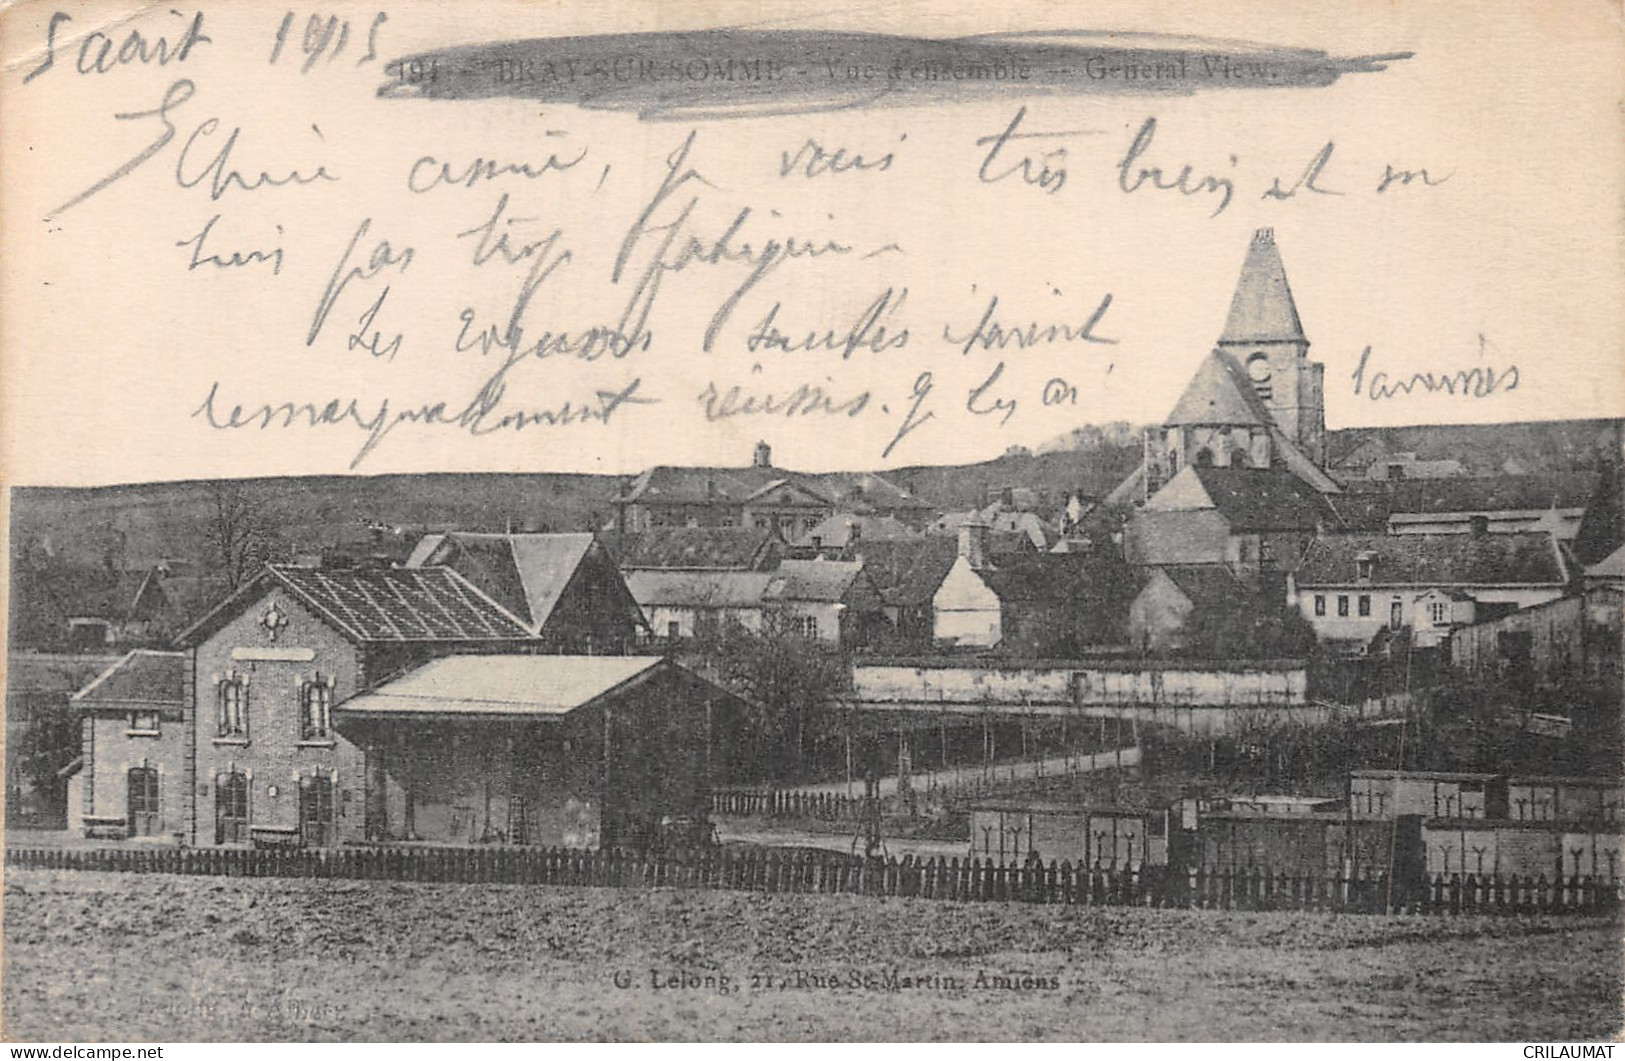 5 août 1915
194 - BRAY-SUR-SOMME - Vue d'ensemble - General View.
Chérie aimée, je vais très bien et ne
suis pas trop fatiguée.
Les rognons sautés étaient
remarquablement réussis. Je les ai
savourés
G. Lelong, 21, Rue St-Martin, Amiens
delcampe.net
CRILAUMAT